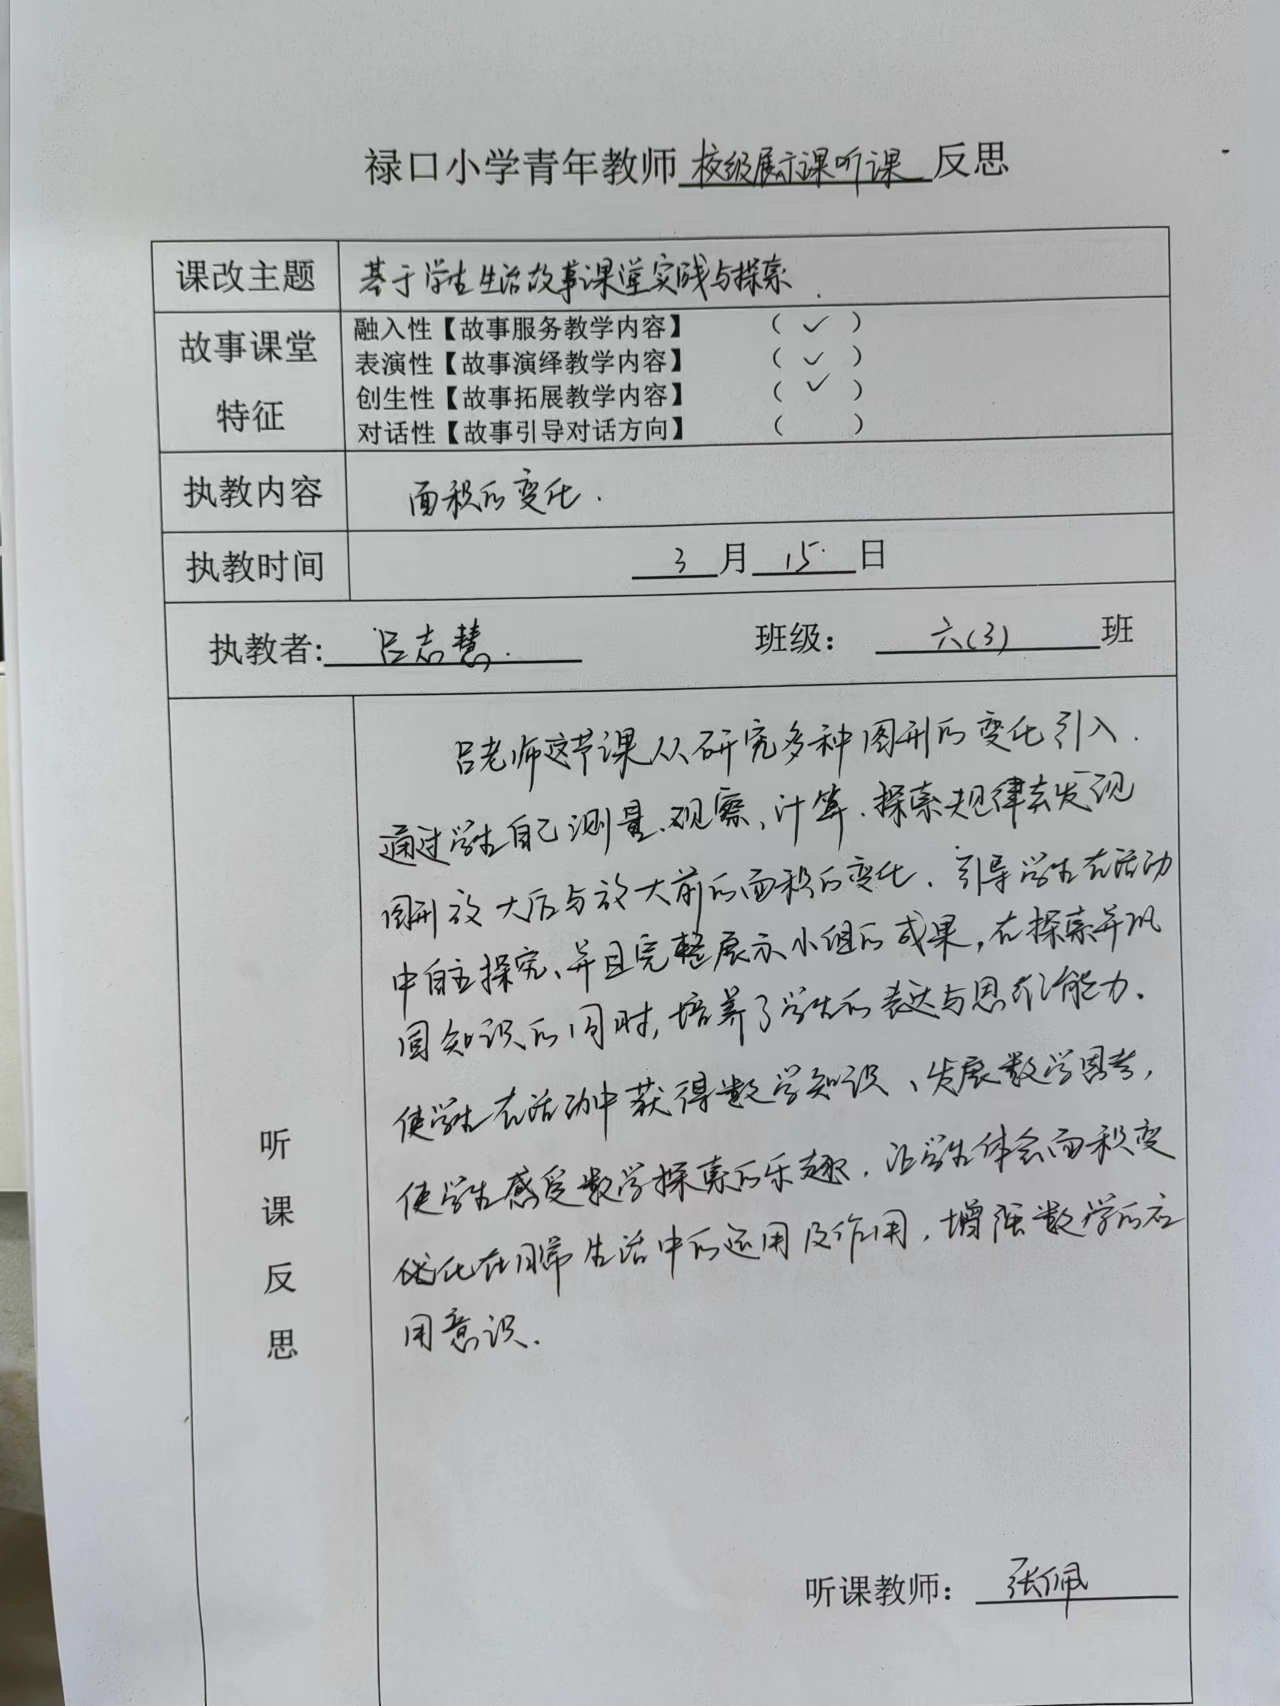 禄口小学青年教师校级展示课听课反思
课改主题 基于学生生活故事课堂实践与探索.
故事课堂特征
融入性【故事服务教学内容】 （ ✓ ）
表演性【故事演绎教学内容】 （ ✓ ）
创生性【故事拓展教学内容】 （ ✓ ）
对话性【故事引导对话方向】 （ ）
执教内容 面积的变化.
执教时间 3月15日
执教者: 吕志慧. 班级： 六(3) 班
听课反思
吕老师这节课从研究多种图形的变化引入.
通过学生自己测量、观察、计算、探索规律去发现
图形放大后与放大前的面积的变化、引导学生在活动
中自主探究、并且完整展示小组的成果，在探索并巩
固知识的同时，培养了学生的表达与思维能力.
使学生在活动中获得数学知识、发展数学思考，
使学生感受数学探索的乐趣. 让学生体会面积变
化在日常生活中的运用及作用，增强数学的应
用意识.
听课教师： 张佩